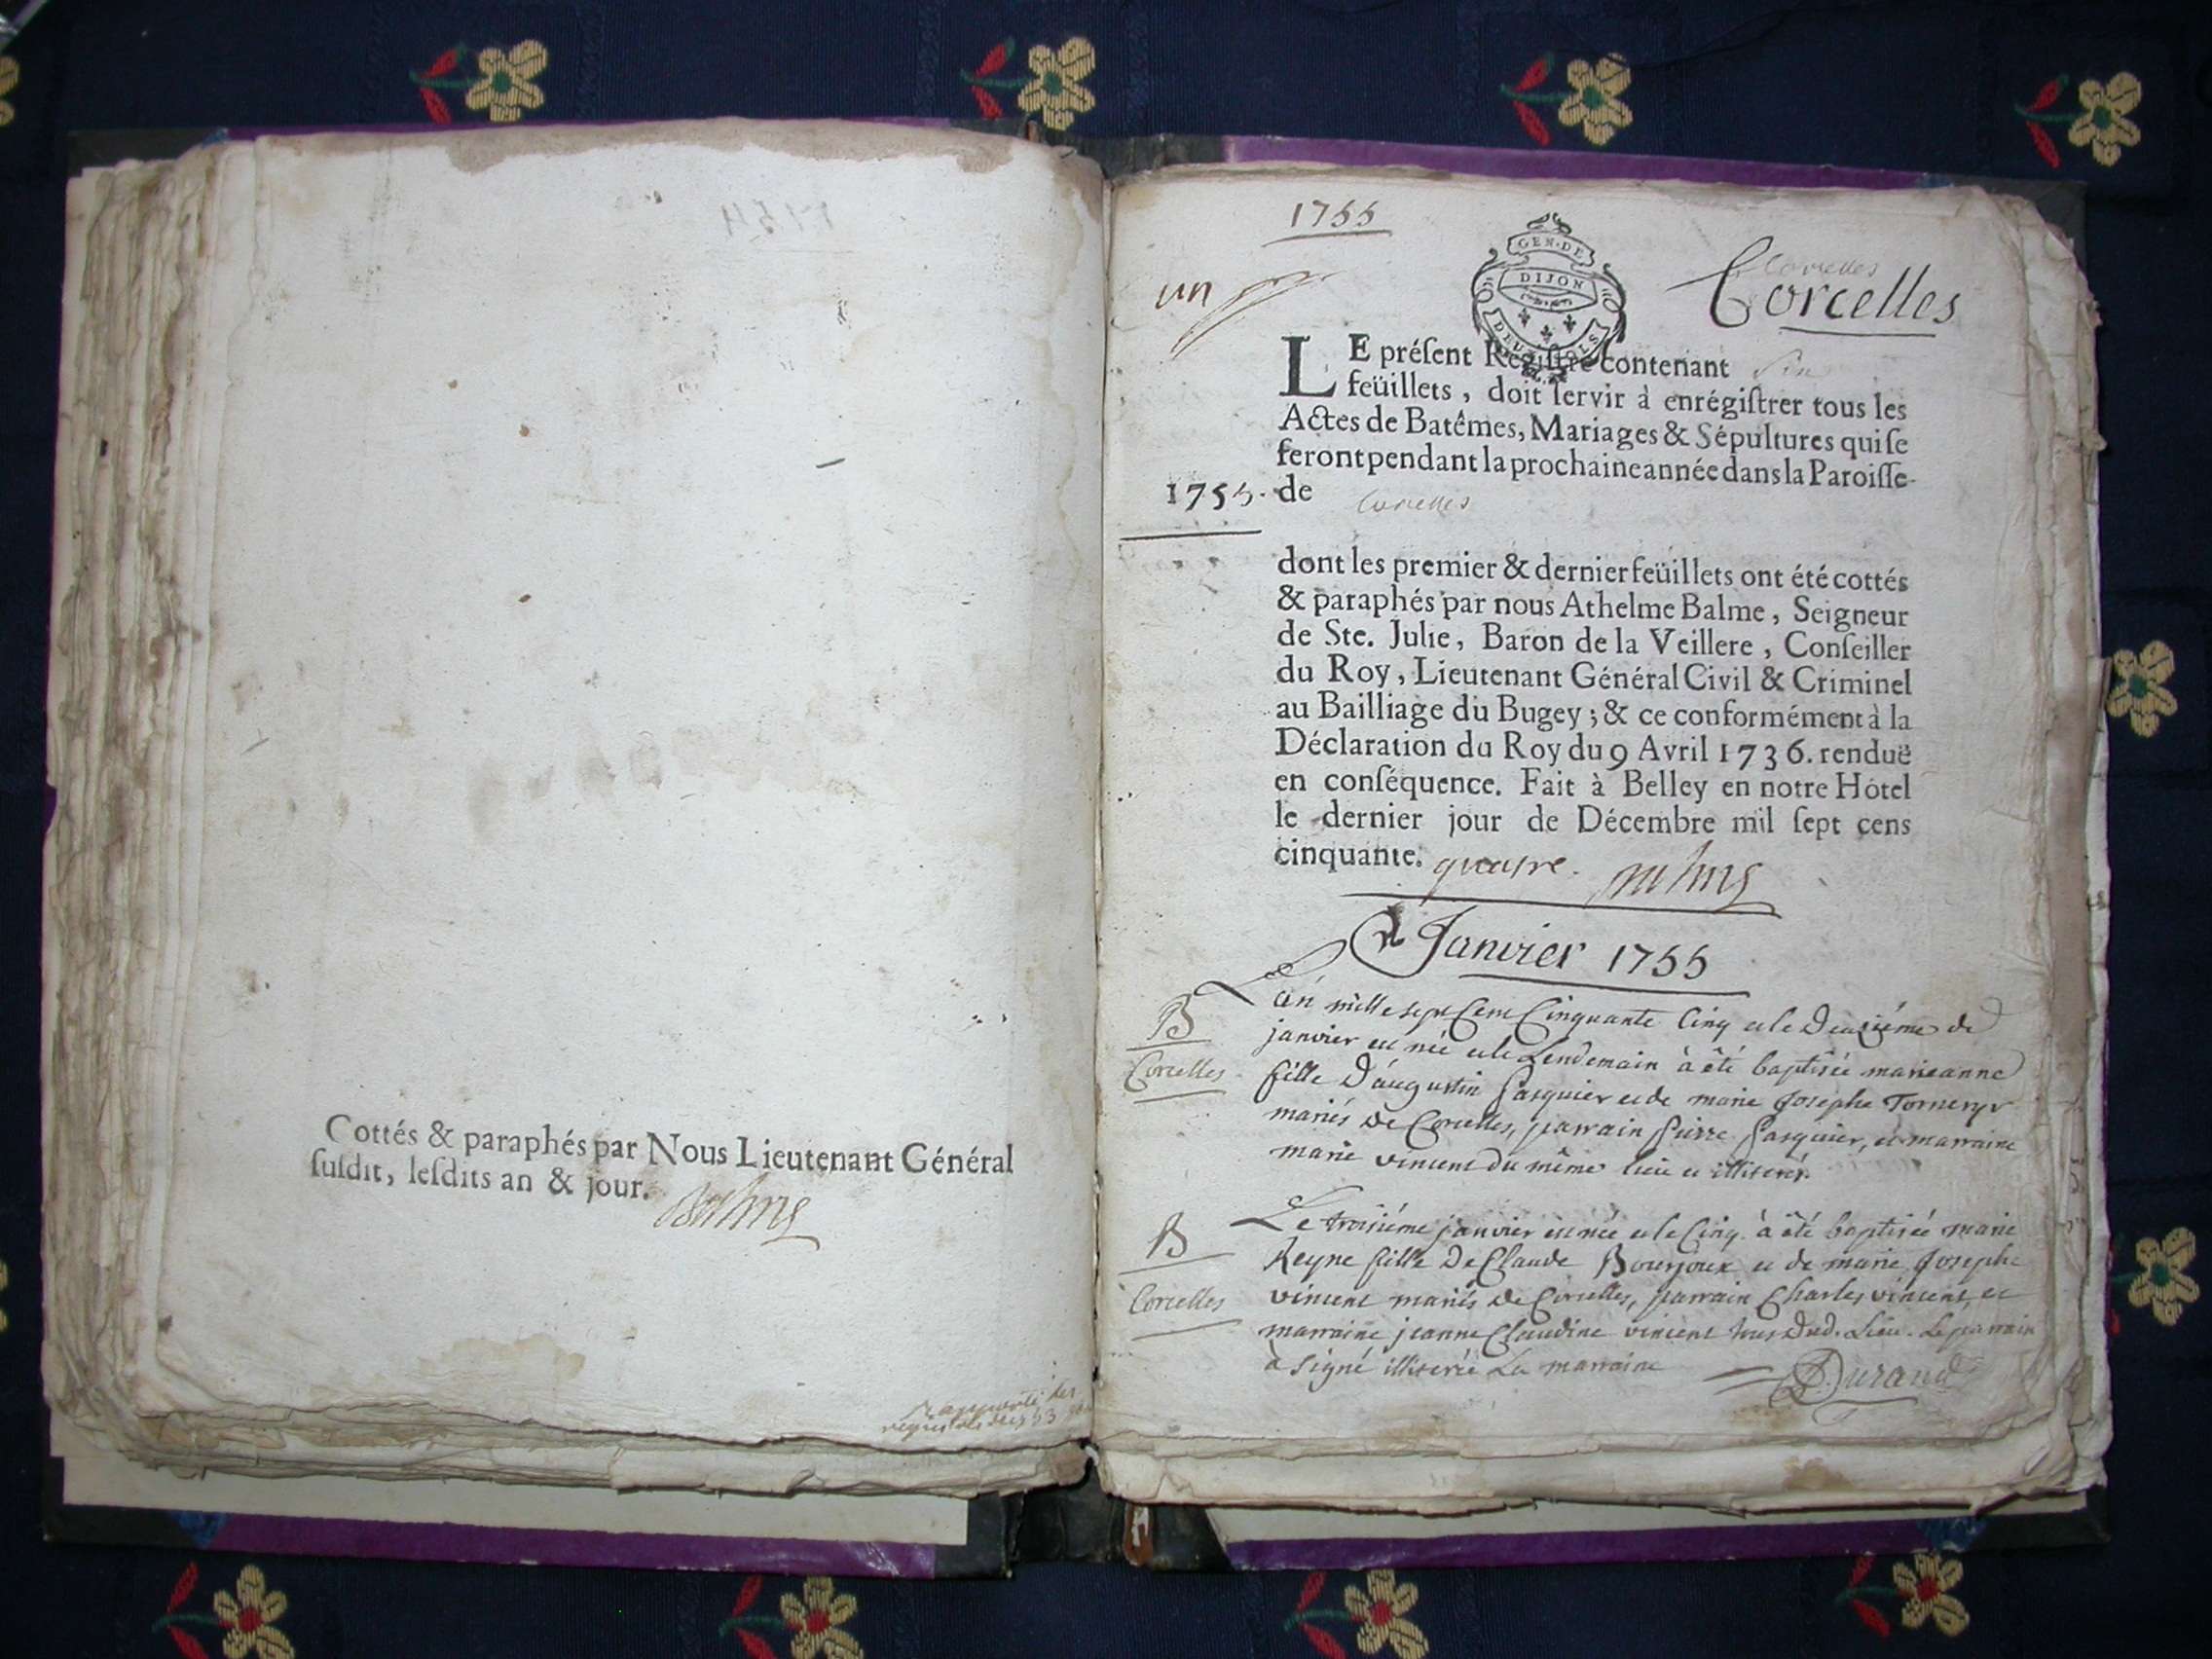 Cottés & paraphés par Nous Lieutenant Général
susdit, lesdits an & jour. Balme
1755
un
GEN·DE
DIJON
DEUX SOLS
Corcelles
Corcelles
LE présent Registre contenant Six
feüillets, doit servir à enrégistrer tous les
Actes de Batêmes, Mariages & Sépultures qui se
feront pendant la prochaine année dans la Paroisse
1755. de Corcelles
dont les premier & dernier feüillets ont été cottés
& paraphés par nous Athelme Balme, Seigneur
de Ste. Julie, Baron de la Veillere, Conseiller
du Roy, Lieutenant Général Civil & Criminel
au Bailliage du Bugey; & ce conformément à la
Déclaration du Roy du 9 Avril 1736. renduë
en conséquence. Fait à Belley en notre Hôtel
le dernier jour de Décembre mil sept cens
cinquante. quatre. Balme
Janvier 1755
B
Corcelles
L'an mille sept Cent Cinquante Cinq et le Deuxiéme de
janvier est née et le Lendemain à été baptisée marieanne
fille D'augustin Pasquier et de marie Josephe Tornery
mariés de Corcelles, parrain Pierre Pasquier, et marraine
marie vincent du même lieu et illiterés.
B
Corcelles
Le troisiéme janvier est née et le Cinq à été baptisée marie
Reyne fille De Claude Bourjoux et de marie Josephe
vincent mariés de Corcelles, parrain Charles vincent, et
marraine jeanne Claudine vincent tous dud. Lieu. Le parrain
à signé illiterée La marraine Durand